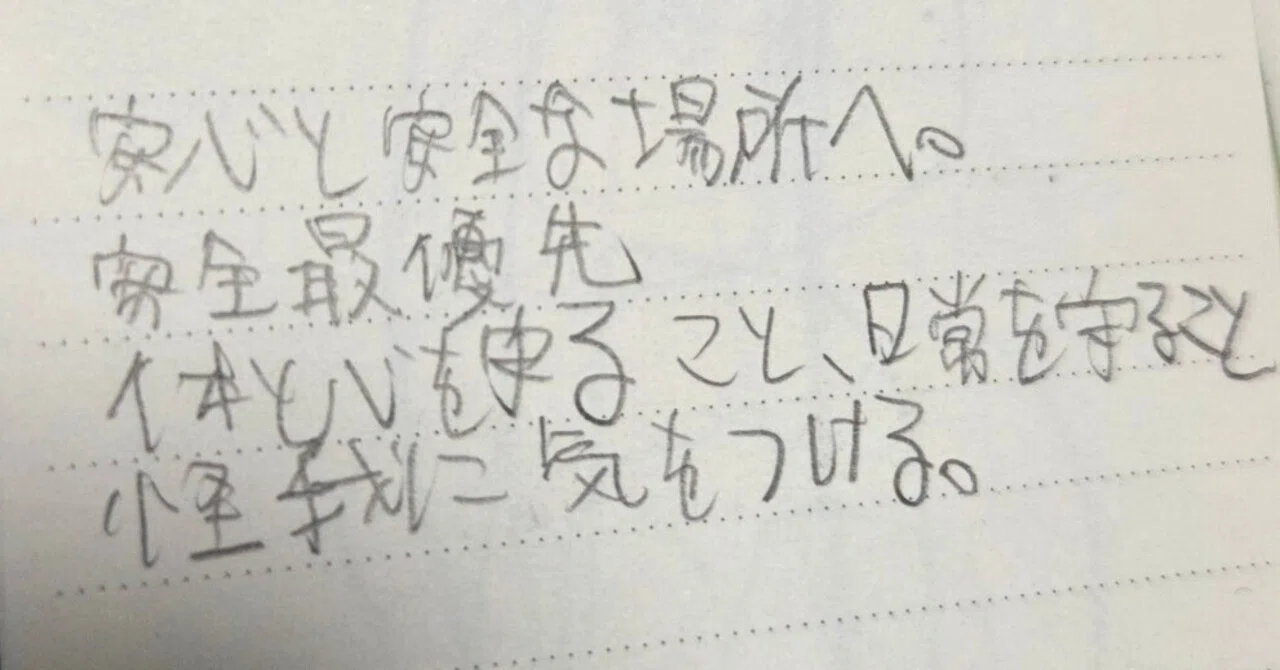 安心と安全な場所へ。
安全最優先
体と心を守ること、日常を守ること
怪我に気をつける。